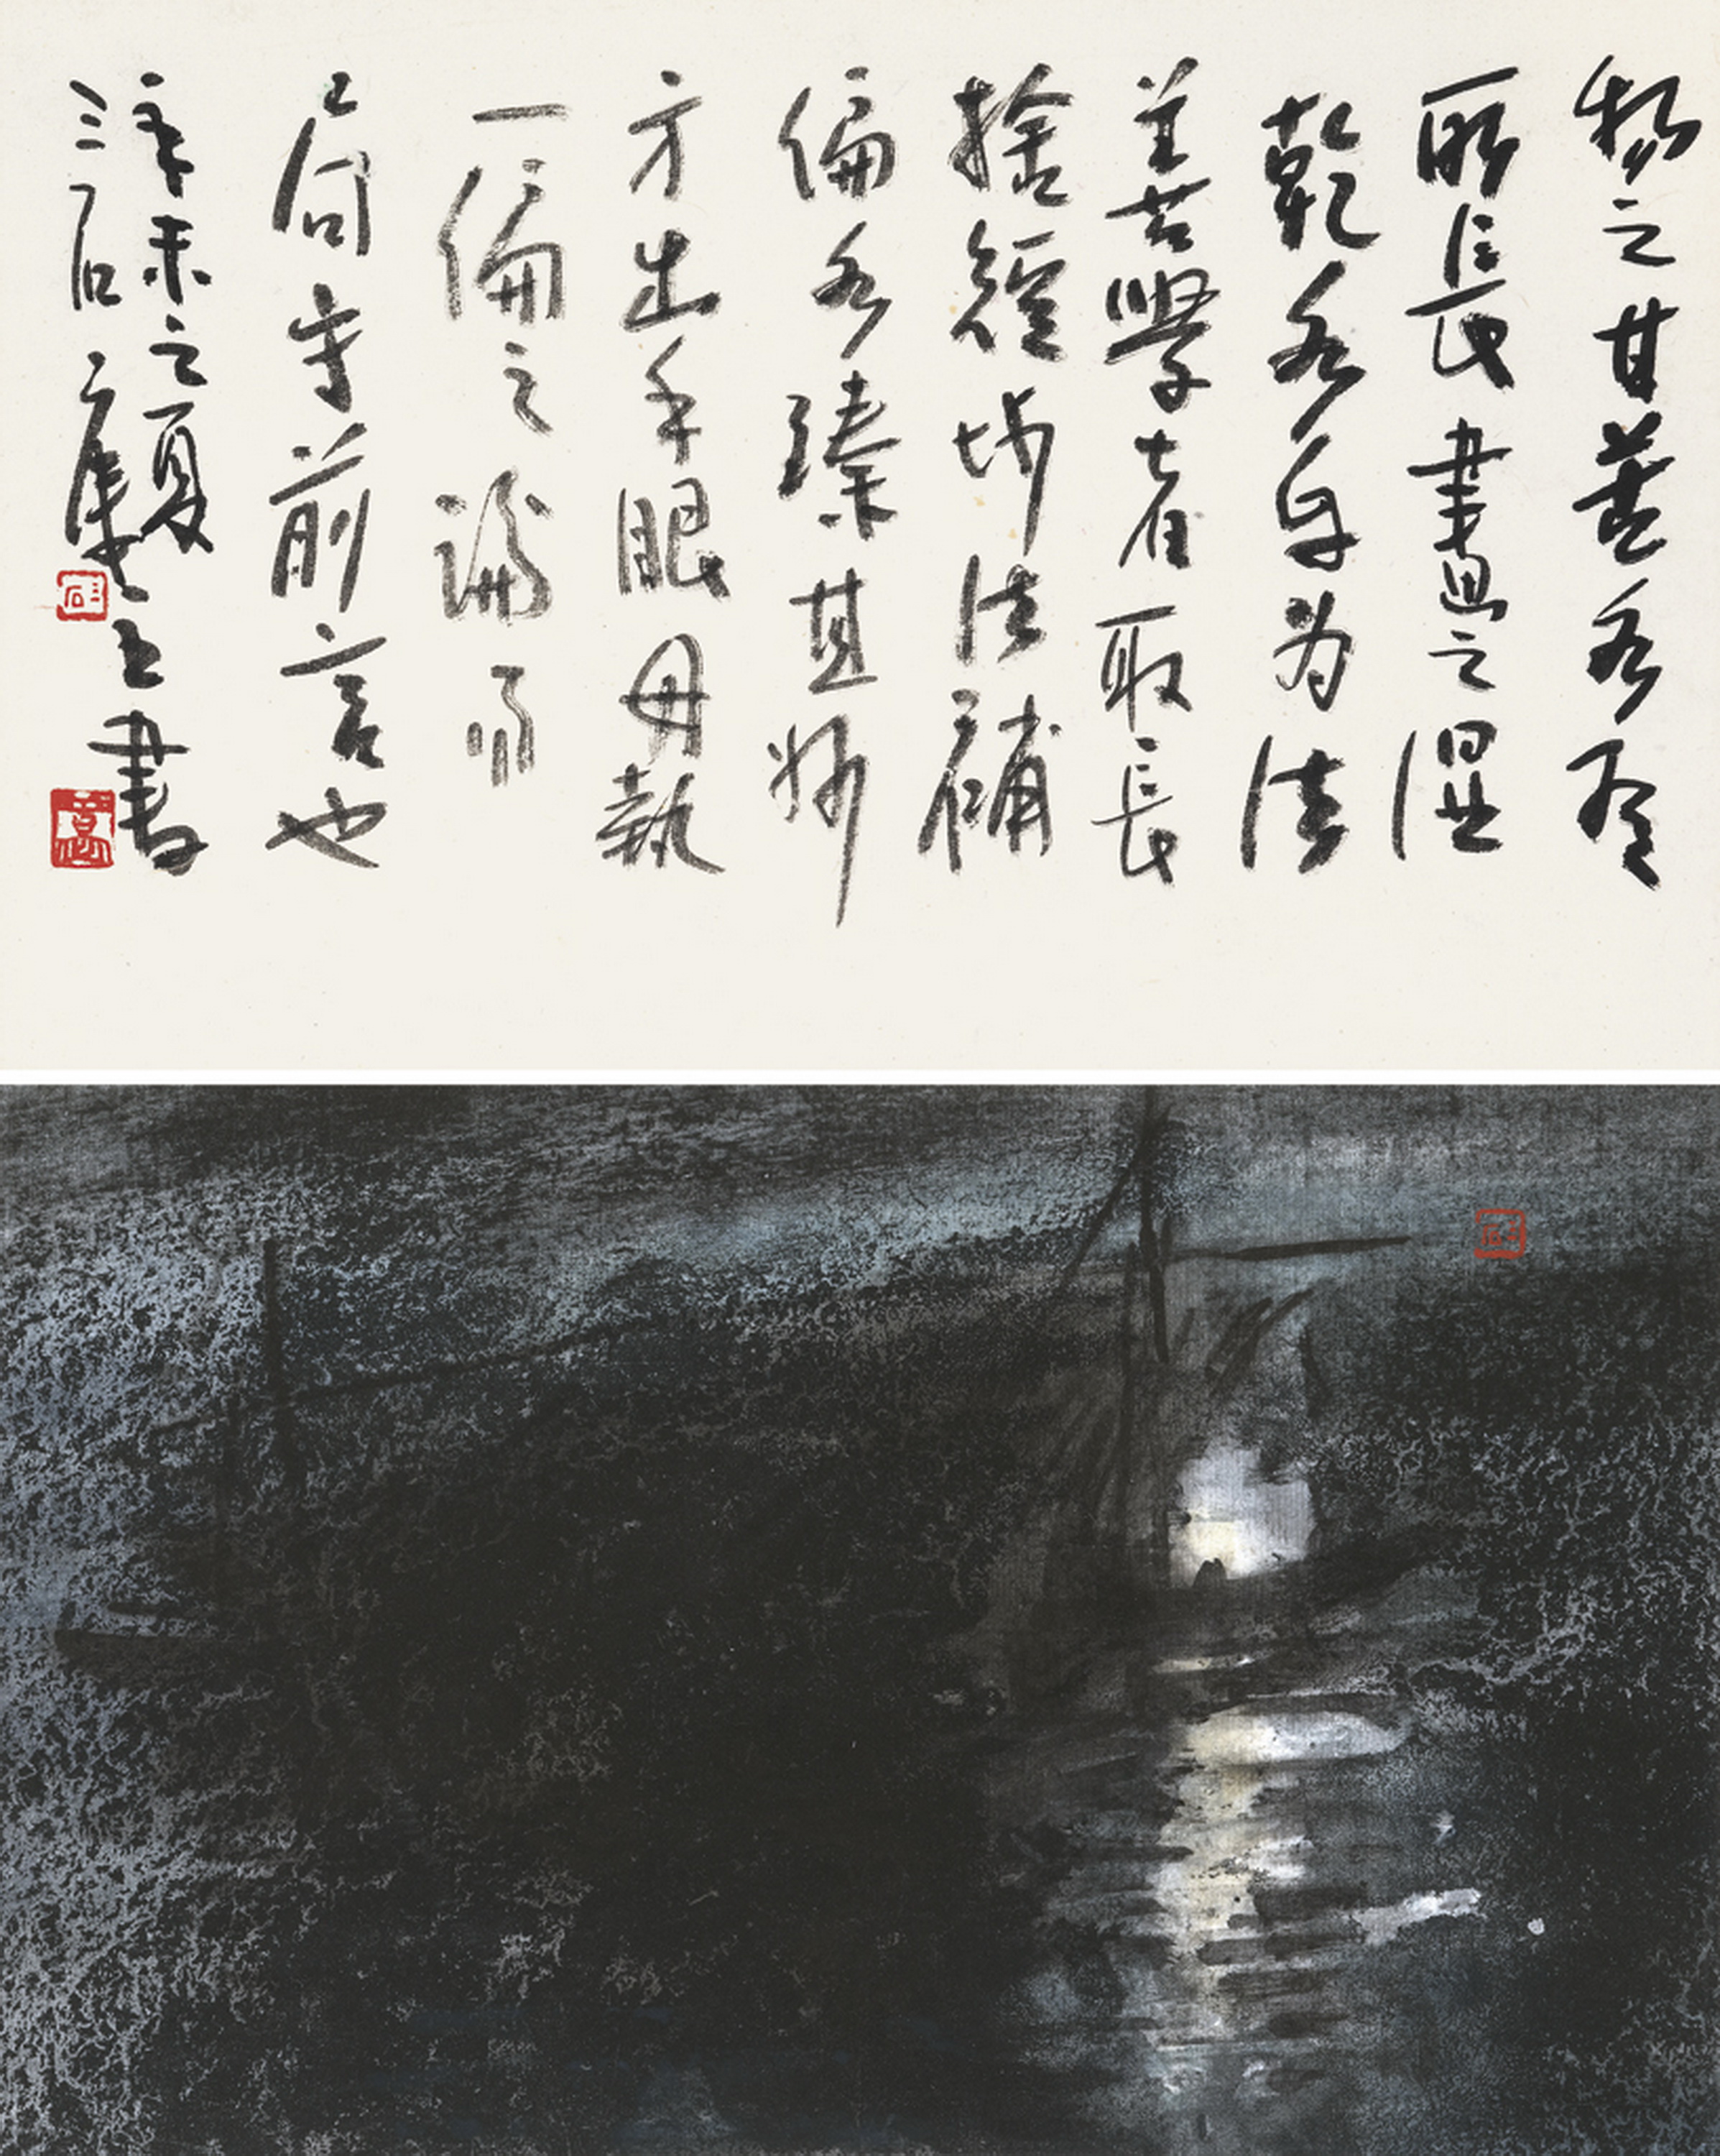 物之甘苦各有
所長畫之濕
乾各自为法
善學者取長
捨短切法補
偏各臻其妙
方出手眼毋執
一偏之論而
局守前言也
辛未之夏
三石
書